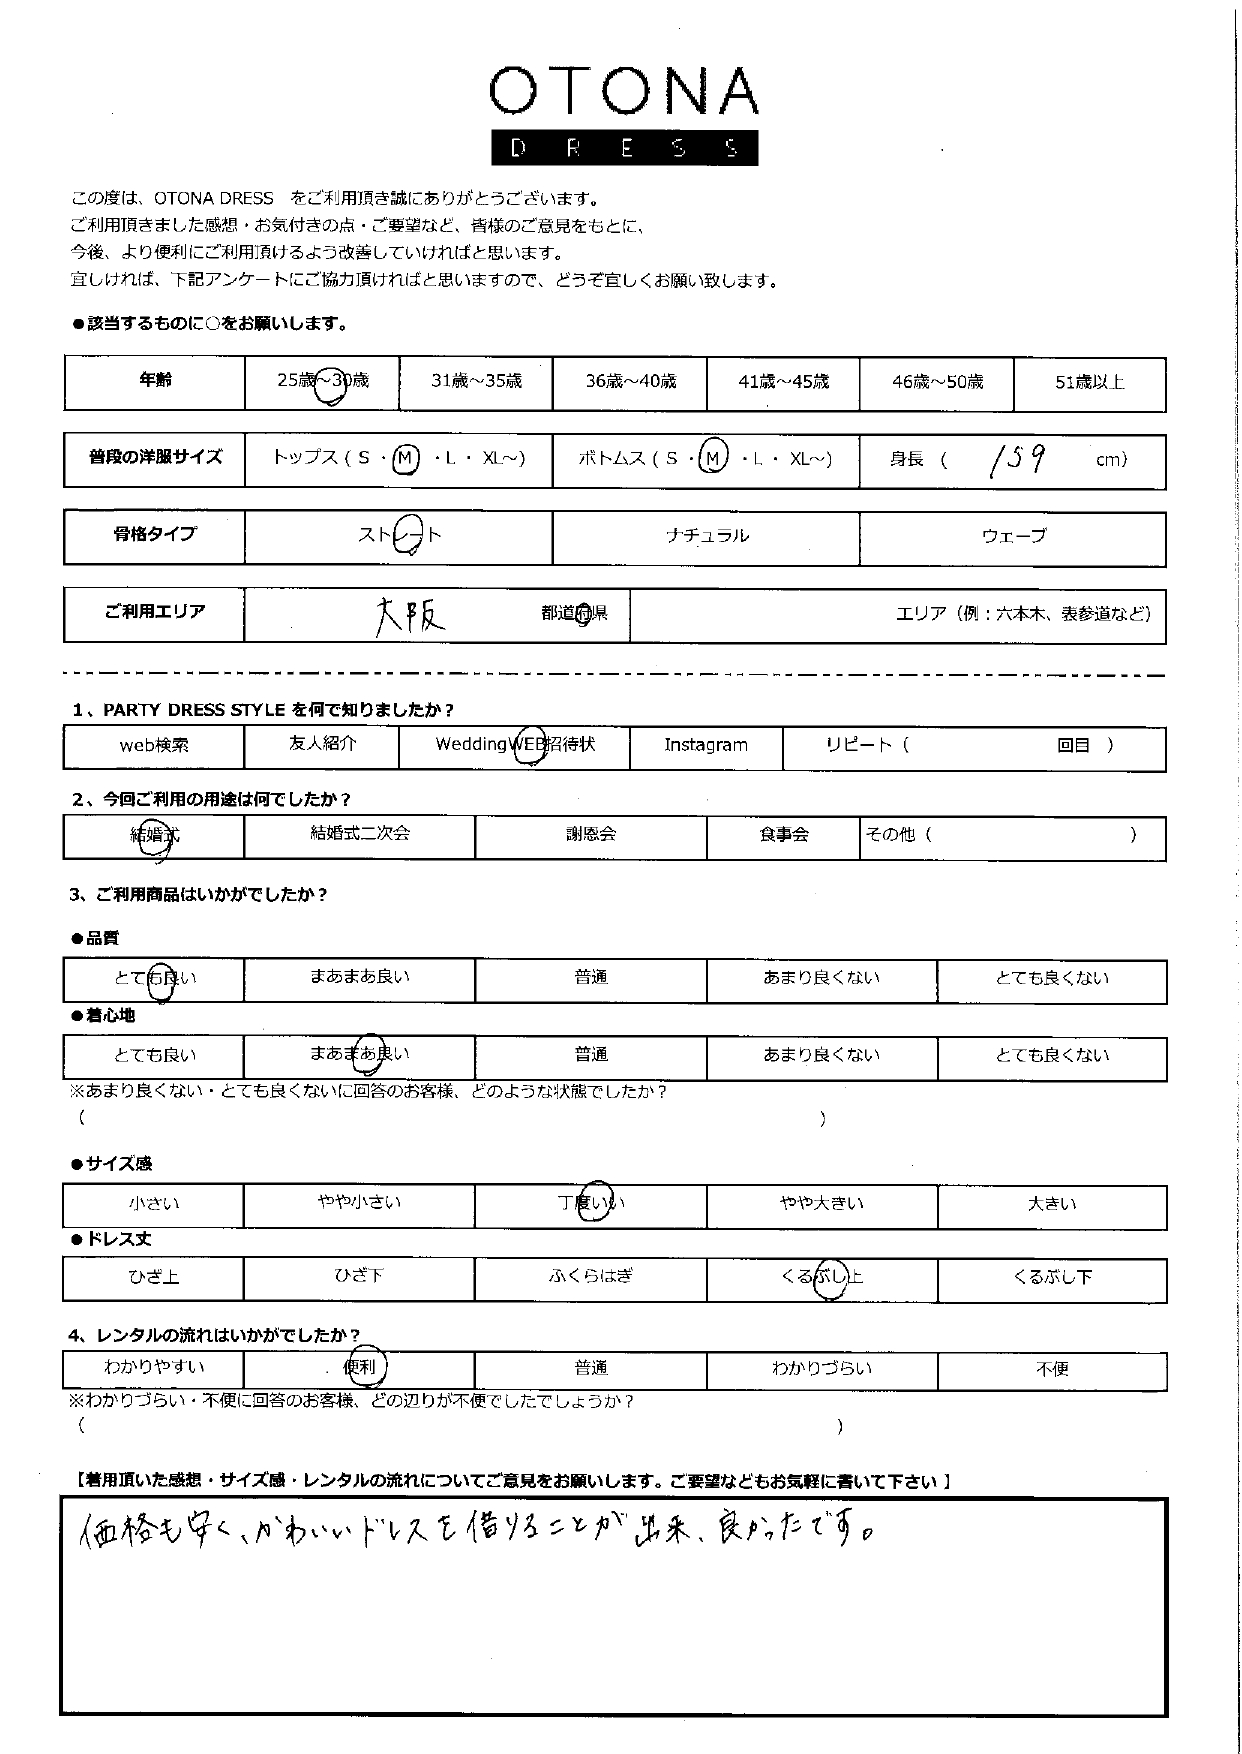 OTONA
DRESS
この度は、OTONA DRESS をご利用頂き誠にありがとうございます。
ご利用頂きました感想・お気付きの点・ご要望など、皆様のご意見をもとに、
今後、より便利にご利用頂けるよう改善していければと思います。
宜しければ、下記アンケートにご協力頂ければと思いますので、どうぞ宜しくお願い致します。
●該当するものに○をお願いします。
年齢 25歳～30歳 31歳～35歳 36歳～40歳 41歳～45歳 46歳～50歳 51歳以上
普段の洋服サイズ トップス ( S ・ M ・ L ・ XL～) ボトムス ( S ・ M ・ L ・ XL～) 身長 ( 159 cm)
骨格タイプ ストレート ナチュラル ウェーブ
ご利用エリア 大阪 都道府県 エリア（例：六本木、表参道など）
1、PARTY DRESS STYLE を何で知りましたか？
web検索 友人紹介 WeddingWEB招待状 Instagram リピート（ 回目 ）
2、今回ご利用の用途は何でしたか？
結婚式 結婚式二次会 謝恩会 食事会 その他（ ）
3、ご利用商品はいかがでしたか？
●品質
とても良い まあまあ良い 普通 あまり良くない とても良くない
●着心地
とても良い まあまあ良い 普通 あまり良くない とても良くない
※あまり良くない・とても良くないに回答のお客様、どのような状態でしたか？
（ ）
●サイズ感
小さい やや小さい 丁度いい やや大きい 大きい
●ドレス丈
ひざ上 ひざ下 ふくらはぎ くるぶし上 くるぶし下
4、レンタルの流れはいかがでしたか？
わかりやすい 便利 普通 わかりづらい 不便
※わかりづらい・不便に回答のお客様、どの辺りが不便でしたでしょうか？
（ ）
【着用頂いた感想・サイズ感・レンタルの流れについてご意見をお願いします。ご要望などもお気軽に書いて下さい 】
価格も安く、かわいいドレスを借りることが出来、良かったです。